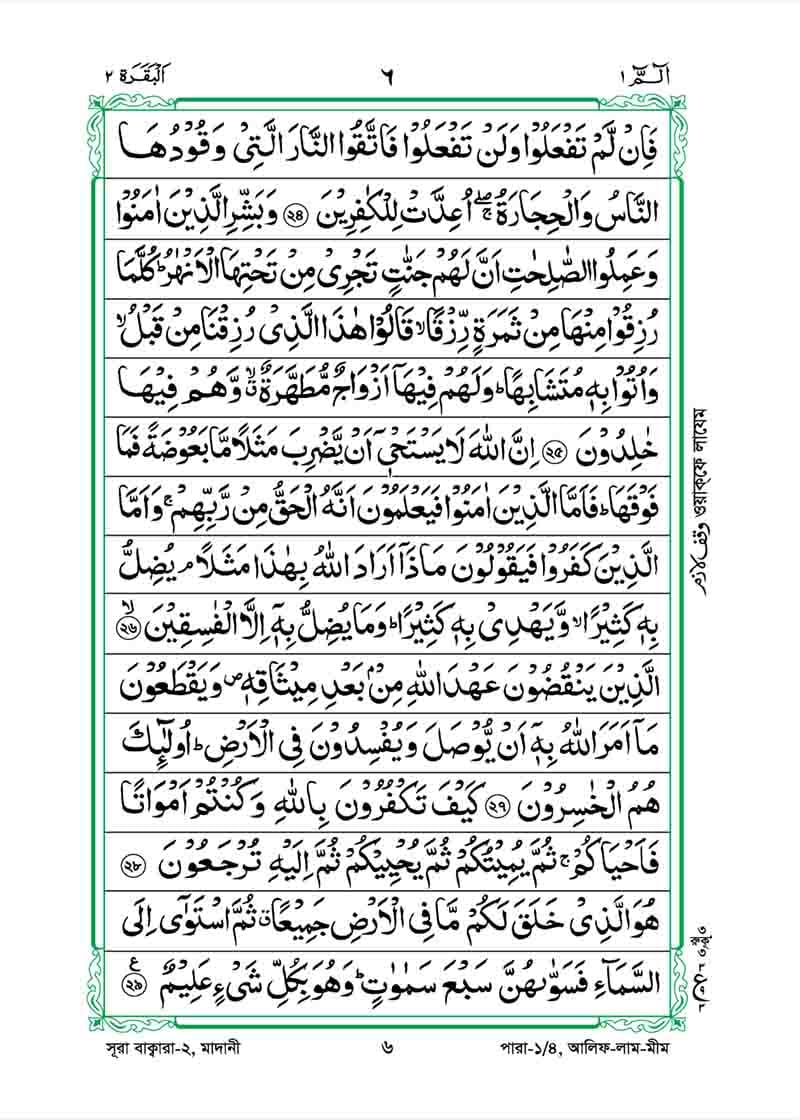 الٓـمّٓ ١
٦
اَلْبَقَرَة ٢
فَاِنْ لَّمْ تَفْعَلُوْا وَلَنْ تَفْعَلُوْا فَاتَّقُوا النَّارَ الَّتِىْ وَقُوْدُهَا
النَّاسُ وَالْحِجَارَةُ ۖۚ اُعِدَّتْ لِلْكٰفِرِيْنَ ﴿২৪﴾ وَبَشِّرِ الَّذِيْنَ اٰمَنُوْا
وَعَمِلُوا الصّٰلِحٰتِ اَنَّ لَهُمْ جَنّٰتٍ تَجْرِىْ مِنْ تَحْتِهَا الْاَنْهٰرُ ؕ كُلَّمَا
رُزِقُوْا مِنْهَا مِنْ ثَمَرَةٍ رِّزْقًا ۙ قَالُوْا هٰذَا الَّذِىْ رُزِقْنَا مِنْ قَبْلُ ۙ
وَاُتُوْا بِهٖ مُتَشَابِهًا ؕ وَلَهُمْ فِيْهَآ اَزْوَاجٌ مُّطَهَّرَةٌ ۙۗ وَّهُمْ فِيْهَا
خٰلِدُوْنَ ﴿২৫﴾ اِنَّ اللّٰهَ لَا يَسْتَحْىٖٓ اَنْ يَّضْرِبَ مَثَلًا مَّا بَعُوْضَةً فَمَا
فَوْقَهَا ؕ فَاَمَّا الَّذِيْنَ اٰمَنُوْا فَيَعْلَمُوْنَ اَنَّهُ الْحَقُّ مِنْ رَّبِّهِمْ ۚ وَاَمَّا
الَّذِيْنَ كَفَرُوْا فَيَقُوْلُوْنَ مَاذَآ اَرَادَ اللّٰهُ بِهٰذَا مَثَلًا ۘ يُضِلُّ
بِهٖ كَثِيْرًا ۙ وَّيَهْدِىْ بِهٖ كَثِيْرًا ؕ وَمَا يُضِلُّ بِهٖٓ اِلَّا الْفٰسِقِيْنَ ۙ﴿২৬﴾
الَّذِيْنَ يَنْقُضُوْنَ عَهْدَ اللّٰهِ مِنْۢ بَعْدِ مِيْثَاقِهٖ ۪ وَيَقْطَعُوْنَ
مَآ اَمَرَ اللّٰهُ بِهٖٓ اَنْ يُّوْصَلَ وَيُفْسِدُوْنَ فِى الْاَرْضِ ؕ اُولٰٓئِكَ
هُمُ الْخٰسِرُوْنَ ﴿২৭﴾ كَيْفَ تَكْفُرُوْنَ بِاللّٰهِ وَكُنْتُمْ اَمْوَاتًا
فَاَحْيَاكُمْ ۚ ثُمَّ يُمِيْتُكُمْ ثُمَّ يُحْيِيْكُمْ ثُمَّ اِلَيْهِ تُرْجَعُوْنَ ﴿২৮﴾
هُوَ الَّذِىْ خَلَقَ لَكُمْ مَّا فِى الْاَرْضِ جَمِيْعًا ۗ ثُمَّ اسْتَوٰٓى اِلَى
السَّمَآءِ فَسَوّٰىهُنَّ سَبْعَ سَمٰوٰتٍ ؕ وَهُوَ بِكُلِّ شَىْءٍ عَلِيْمٌ ۧ﴿২৯﴾
وقف لازم ওয়াক্‌ফে লাযেম
সূরা বাক্বারা-২, মাদানী
৬
পারা-১/৪, আলিফ-লাম-মীম